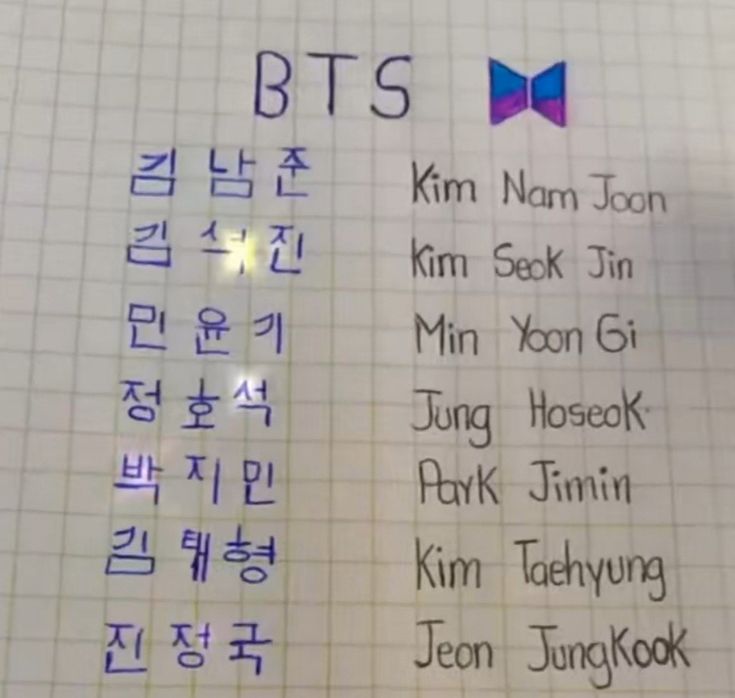 BTS
킴 남 준 Kim Nam Joon
김 석 진 Kim Seok Jin
민 윤 기 Min Yoon Gi
정 호 석 Jung Hoseok
박 지 민 Park Jimin
김 태 형 Kim Taehyung
진 정 국 Jeon Jungkook